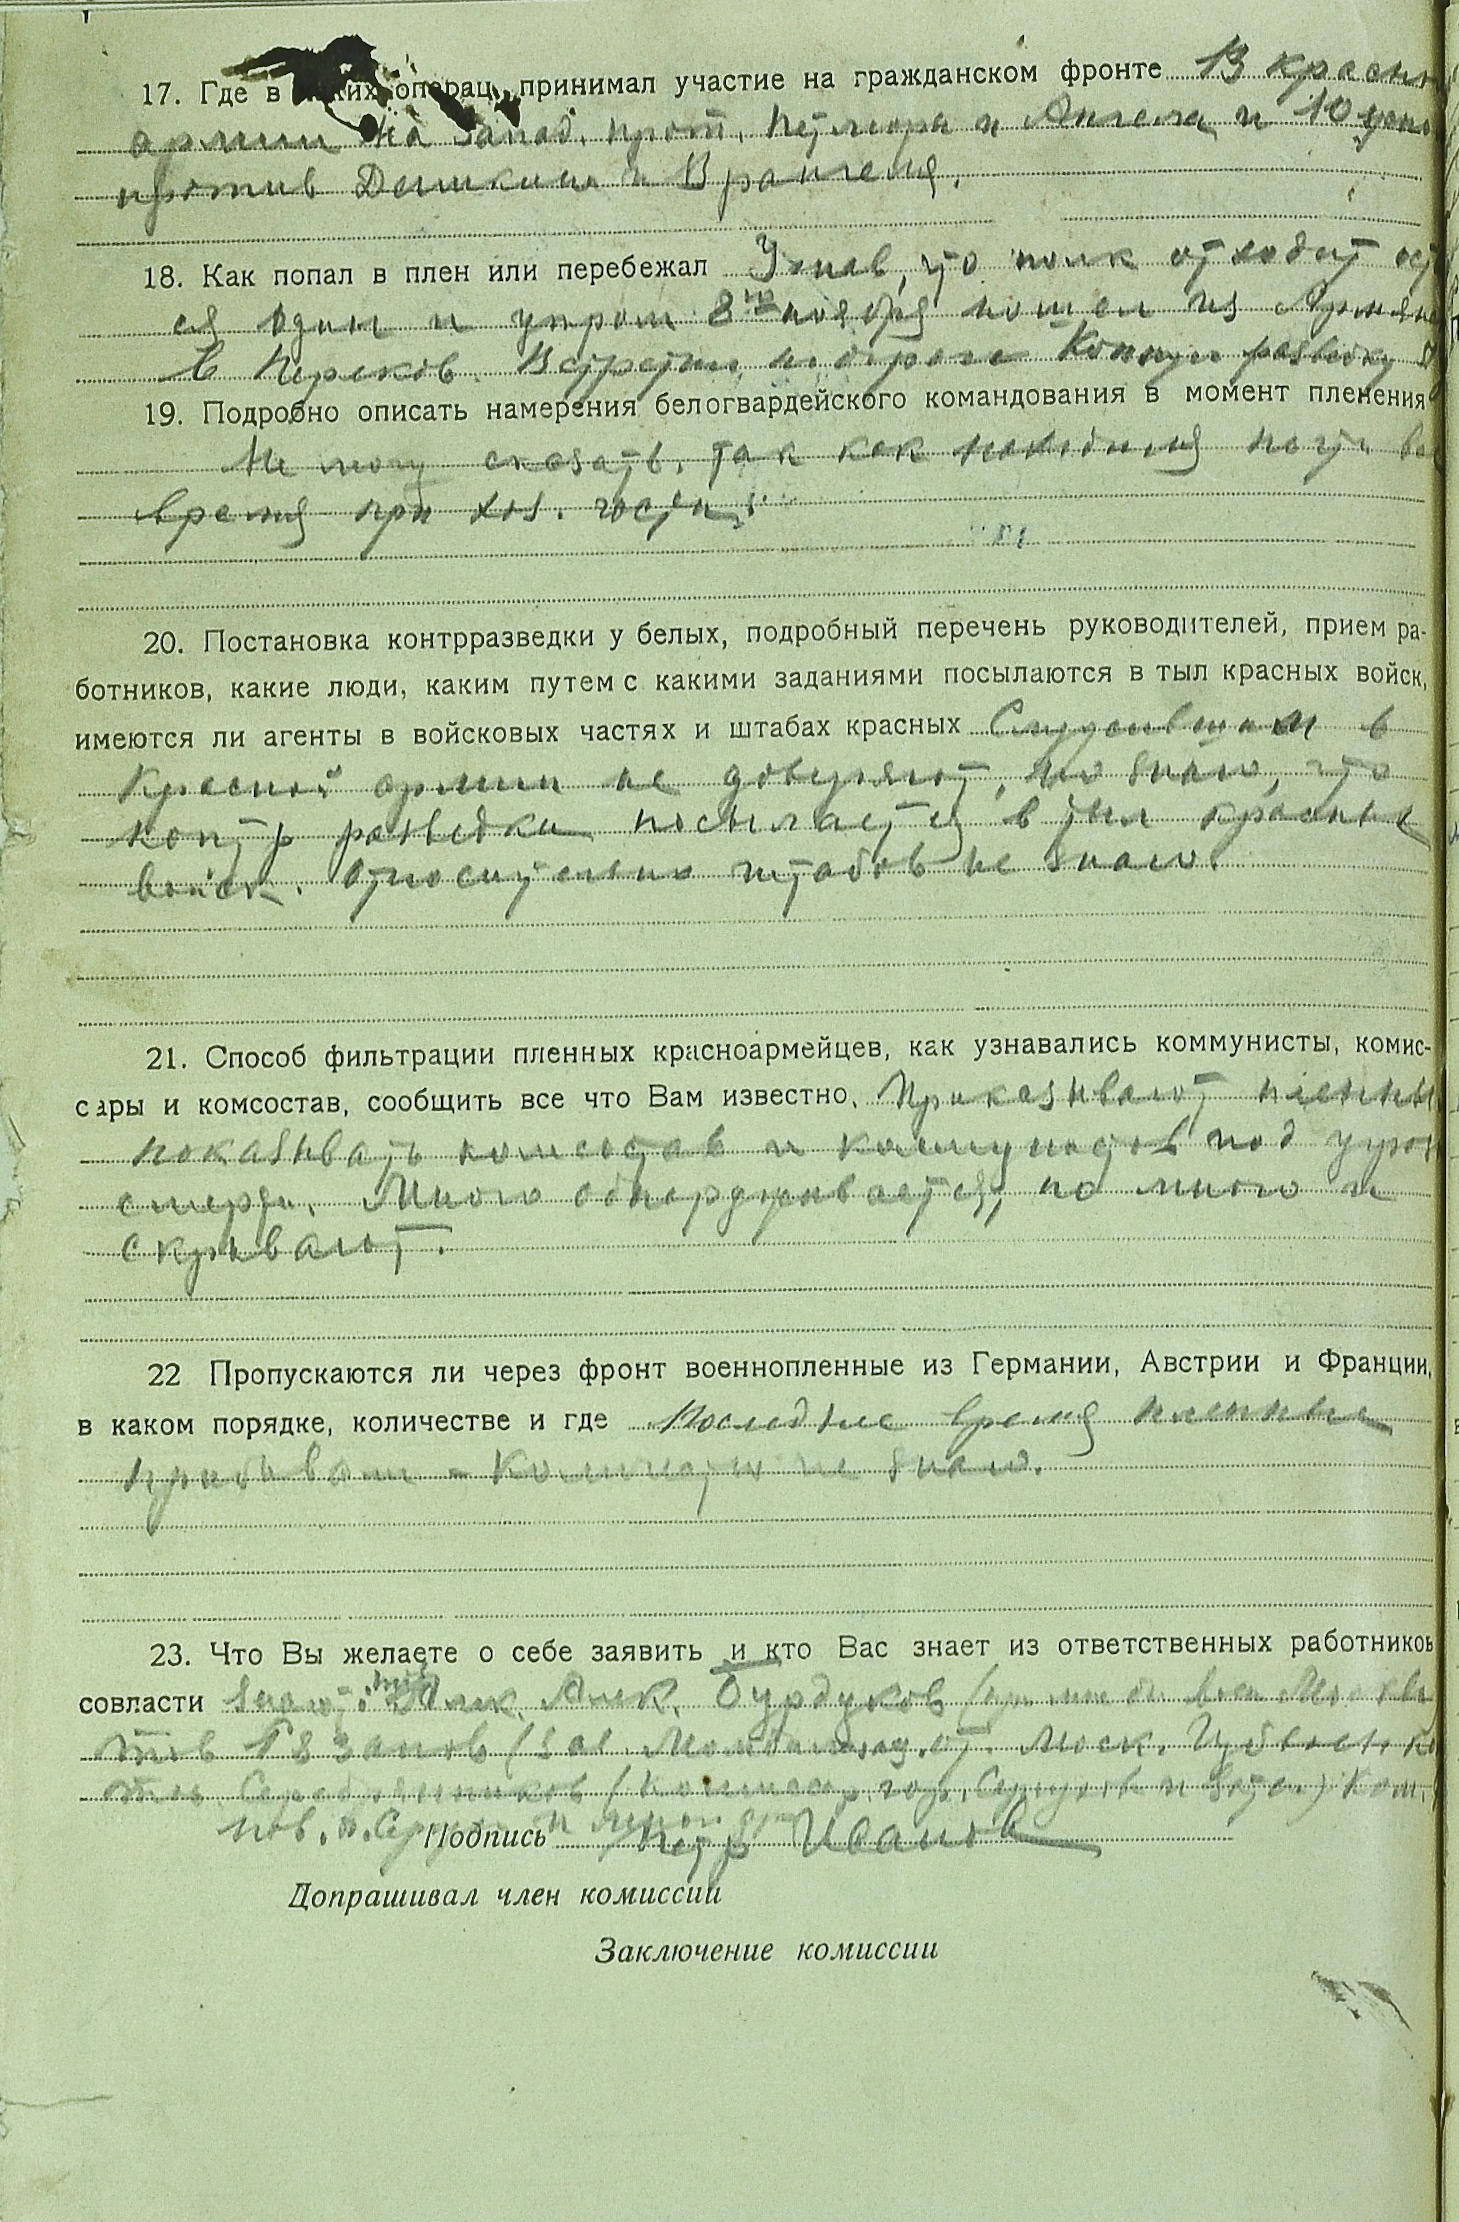 17. Где в каких операц. принимал участие на гражданском фронте В красн
армии на запад. прот. Петлюра и и 10
против Деникина и Врангеля.
18. Как попал в плен или перебежал Узнав, что полк отходит ост
ся один и утром 8го ноября пошел из Армян
в Перекоп. Встретил по дороге конную разведку
19. Подробно описать намерения белогвардейского командования в момент пленения
Не могу сказать, так как находился почти все
время при хоз. части.
20. Постановка контрразведки у белых, подробный перечень руководителей, прием ра-
ботников, какие люди, каким путем с какими заданиями посылаются в тыл красных войск,
имеются ли агенты в войсковых частях и штабах красных Служившим в
Красной армии не доверяют, но знаю, что
контр разведка посылается в тыл красных
войск. Относительно штабов не знаю.
21. Способ фильтрации пленных красноармейцев, как узнавались коммунисты, комис-
сары и комсостав, сообщить все что Вам известно. Приказывают пленны
показывать комсостав и коммунистов под угроз
смерти. Много обнаруживается, но много и
скрывают.
22 Пропускаются ли через фронт военнопленные из Германии, Австрии и Франции,
в каком порядке, количестве и где Последнее время пленные
прибывали - Количество не знаю.
23. Что Вы желаете о себе заявить и кто Вас знает из ответственных работников
совласти знают: Алек. Бурдуков
(зав. от. Моск.
Серебрянников (Комиссар гор.
Подпись Петр Иванов
Допрашивал член комиссии
Заключение комиссии